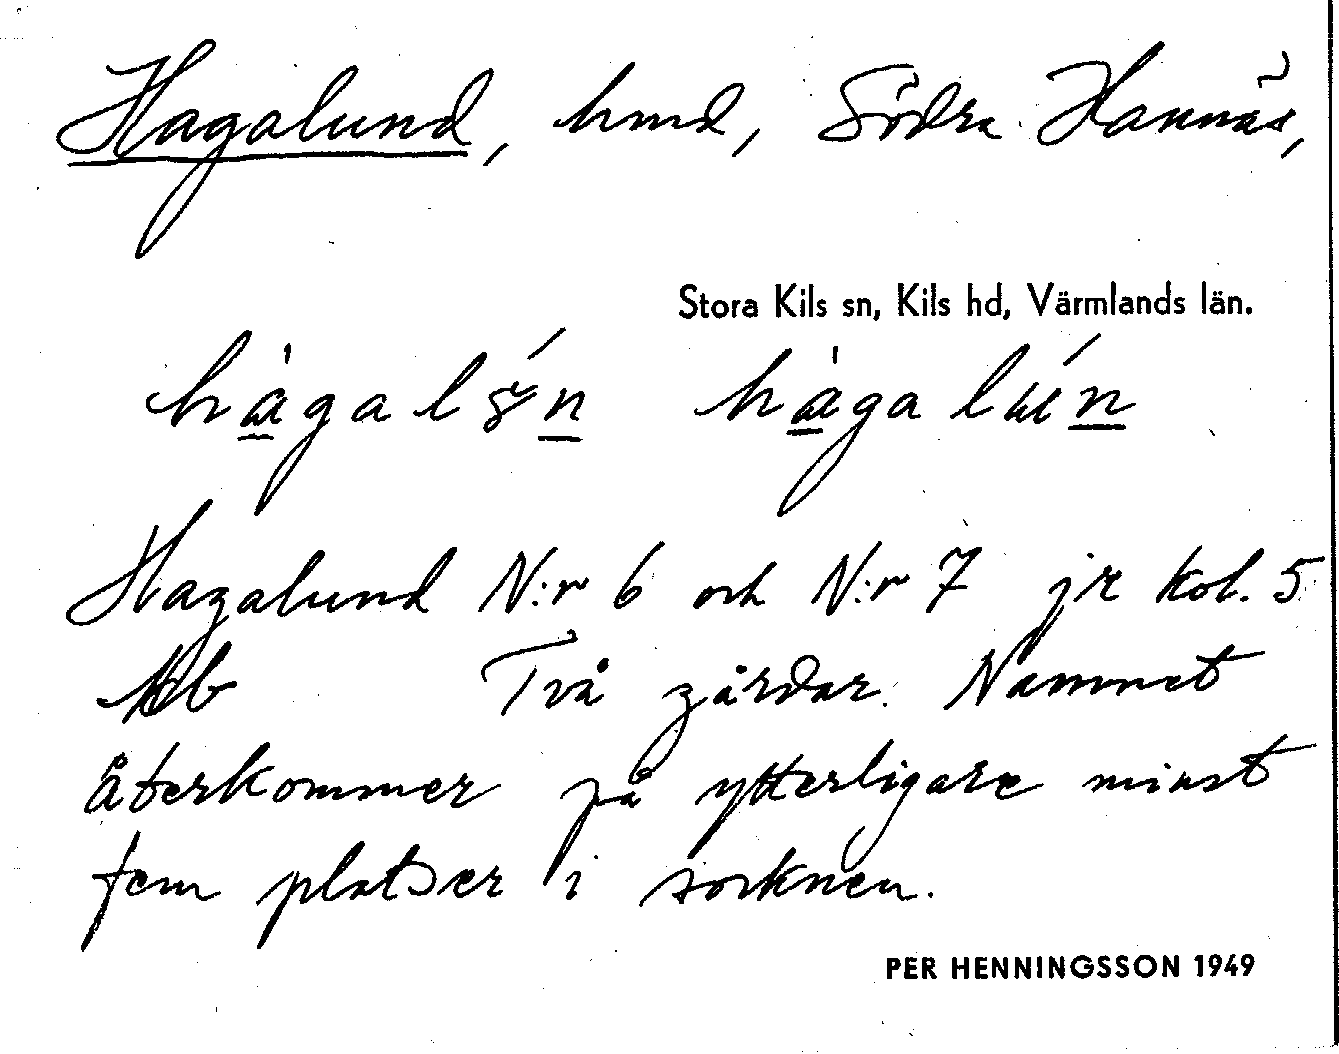 Hagalund, hmd, Södra Hannäs,
Stora Kils sn, Kils hd, Värmlands län.
hàgal n hàgalún
Hagalund N:r 6 och N:r 7 jr kol. 5
Två gårdar. Namnet
återkommer på ytterligare minst
fem platser i socknen.
PER HENNINGSSON 1949